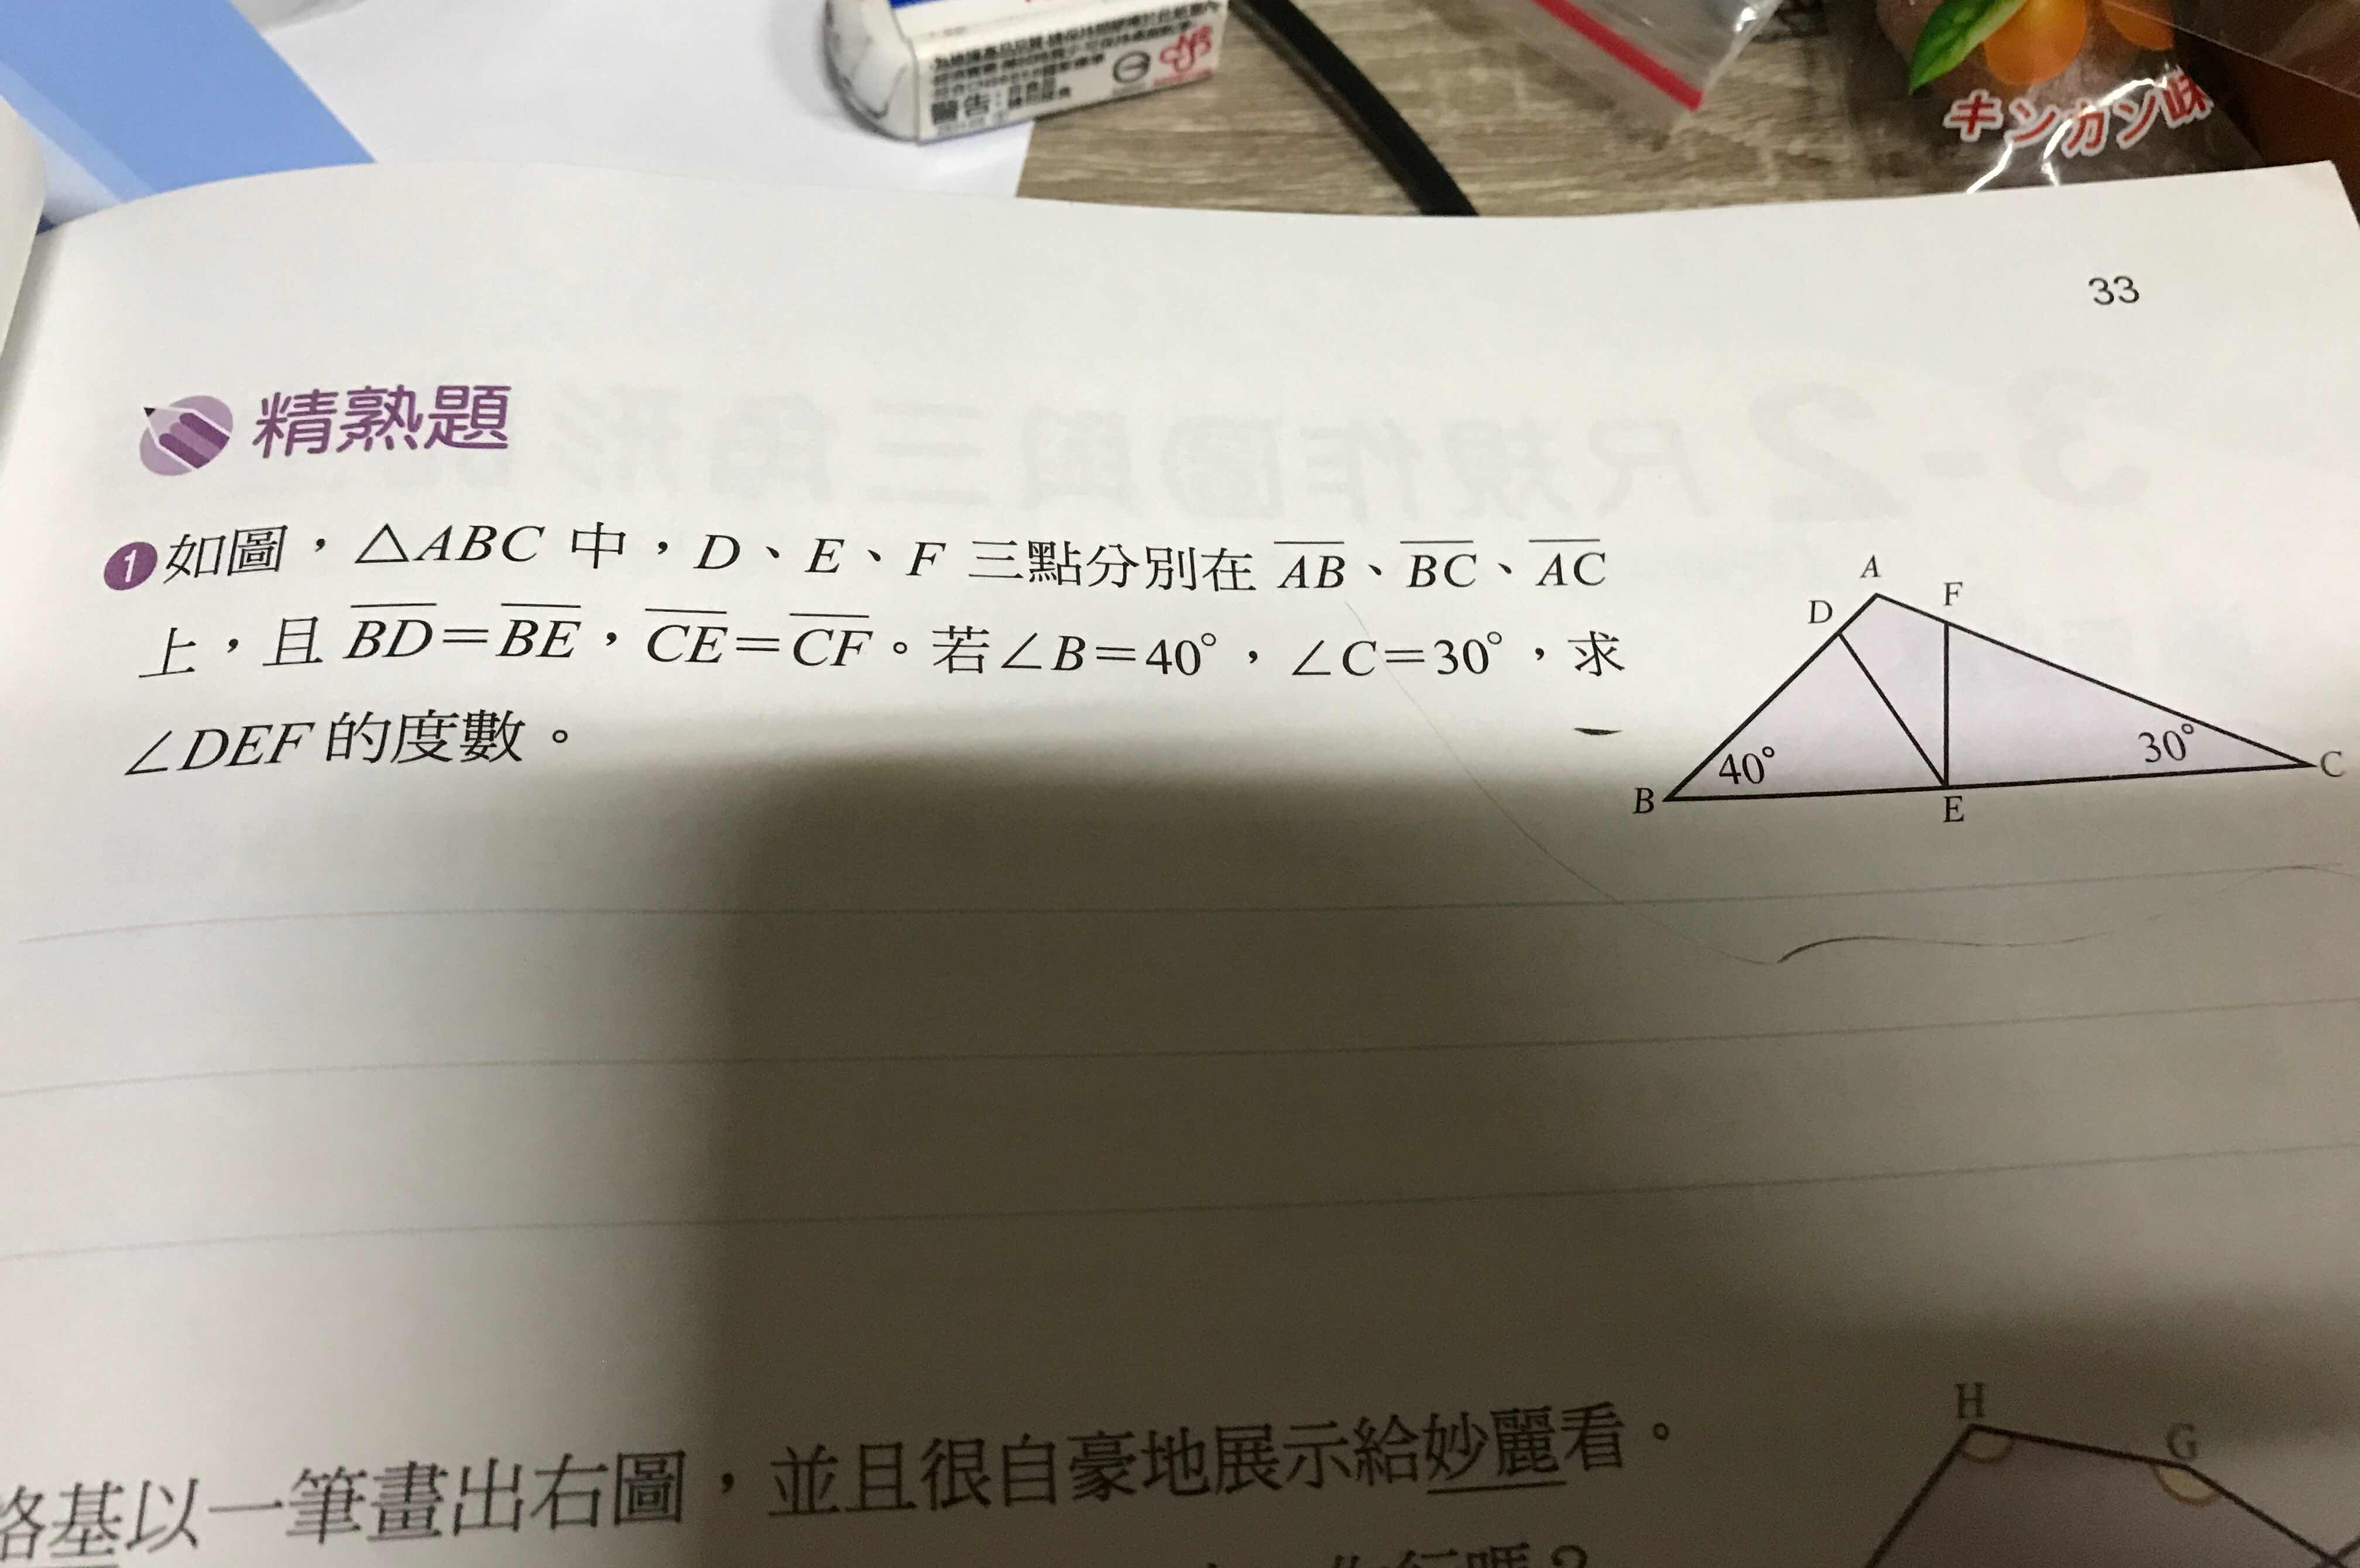 警告:
キンカン味
33
精熟題
1 如圖,△ABC 中,D、E、F 三點分別在 AB、BC、AC
上,且 BD=BE,CE=CF。若∠B=40°,∠C=30°,求
∠DEF 的度數。
A
F
D
40°
30°
C
B
E
基以一筆畫出右圖,並且很自豪地展示給妙麗看。
H
G